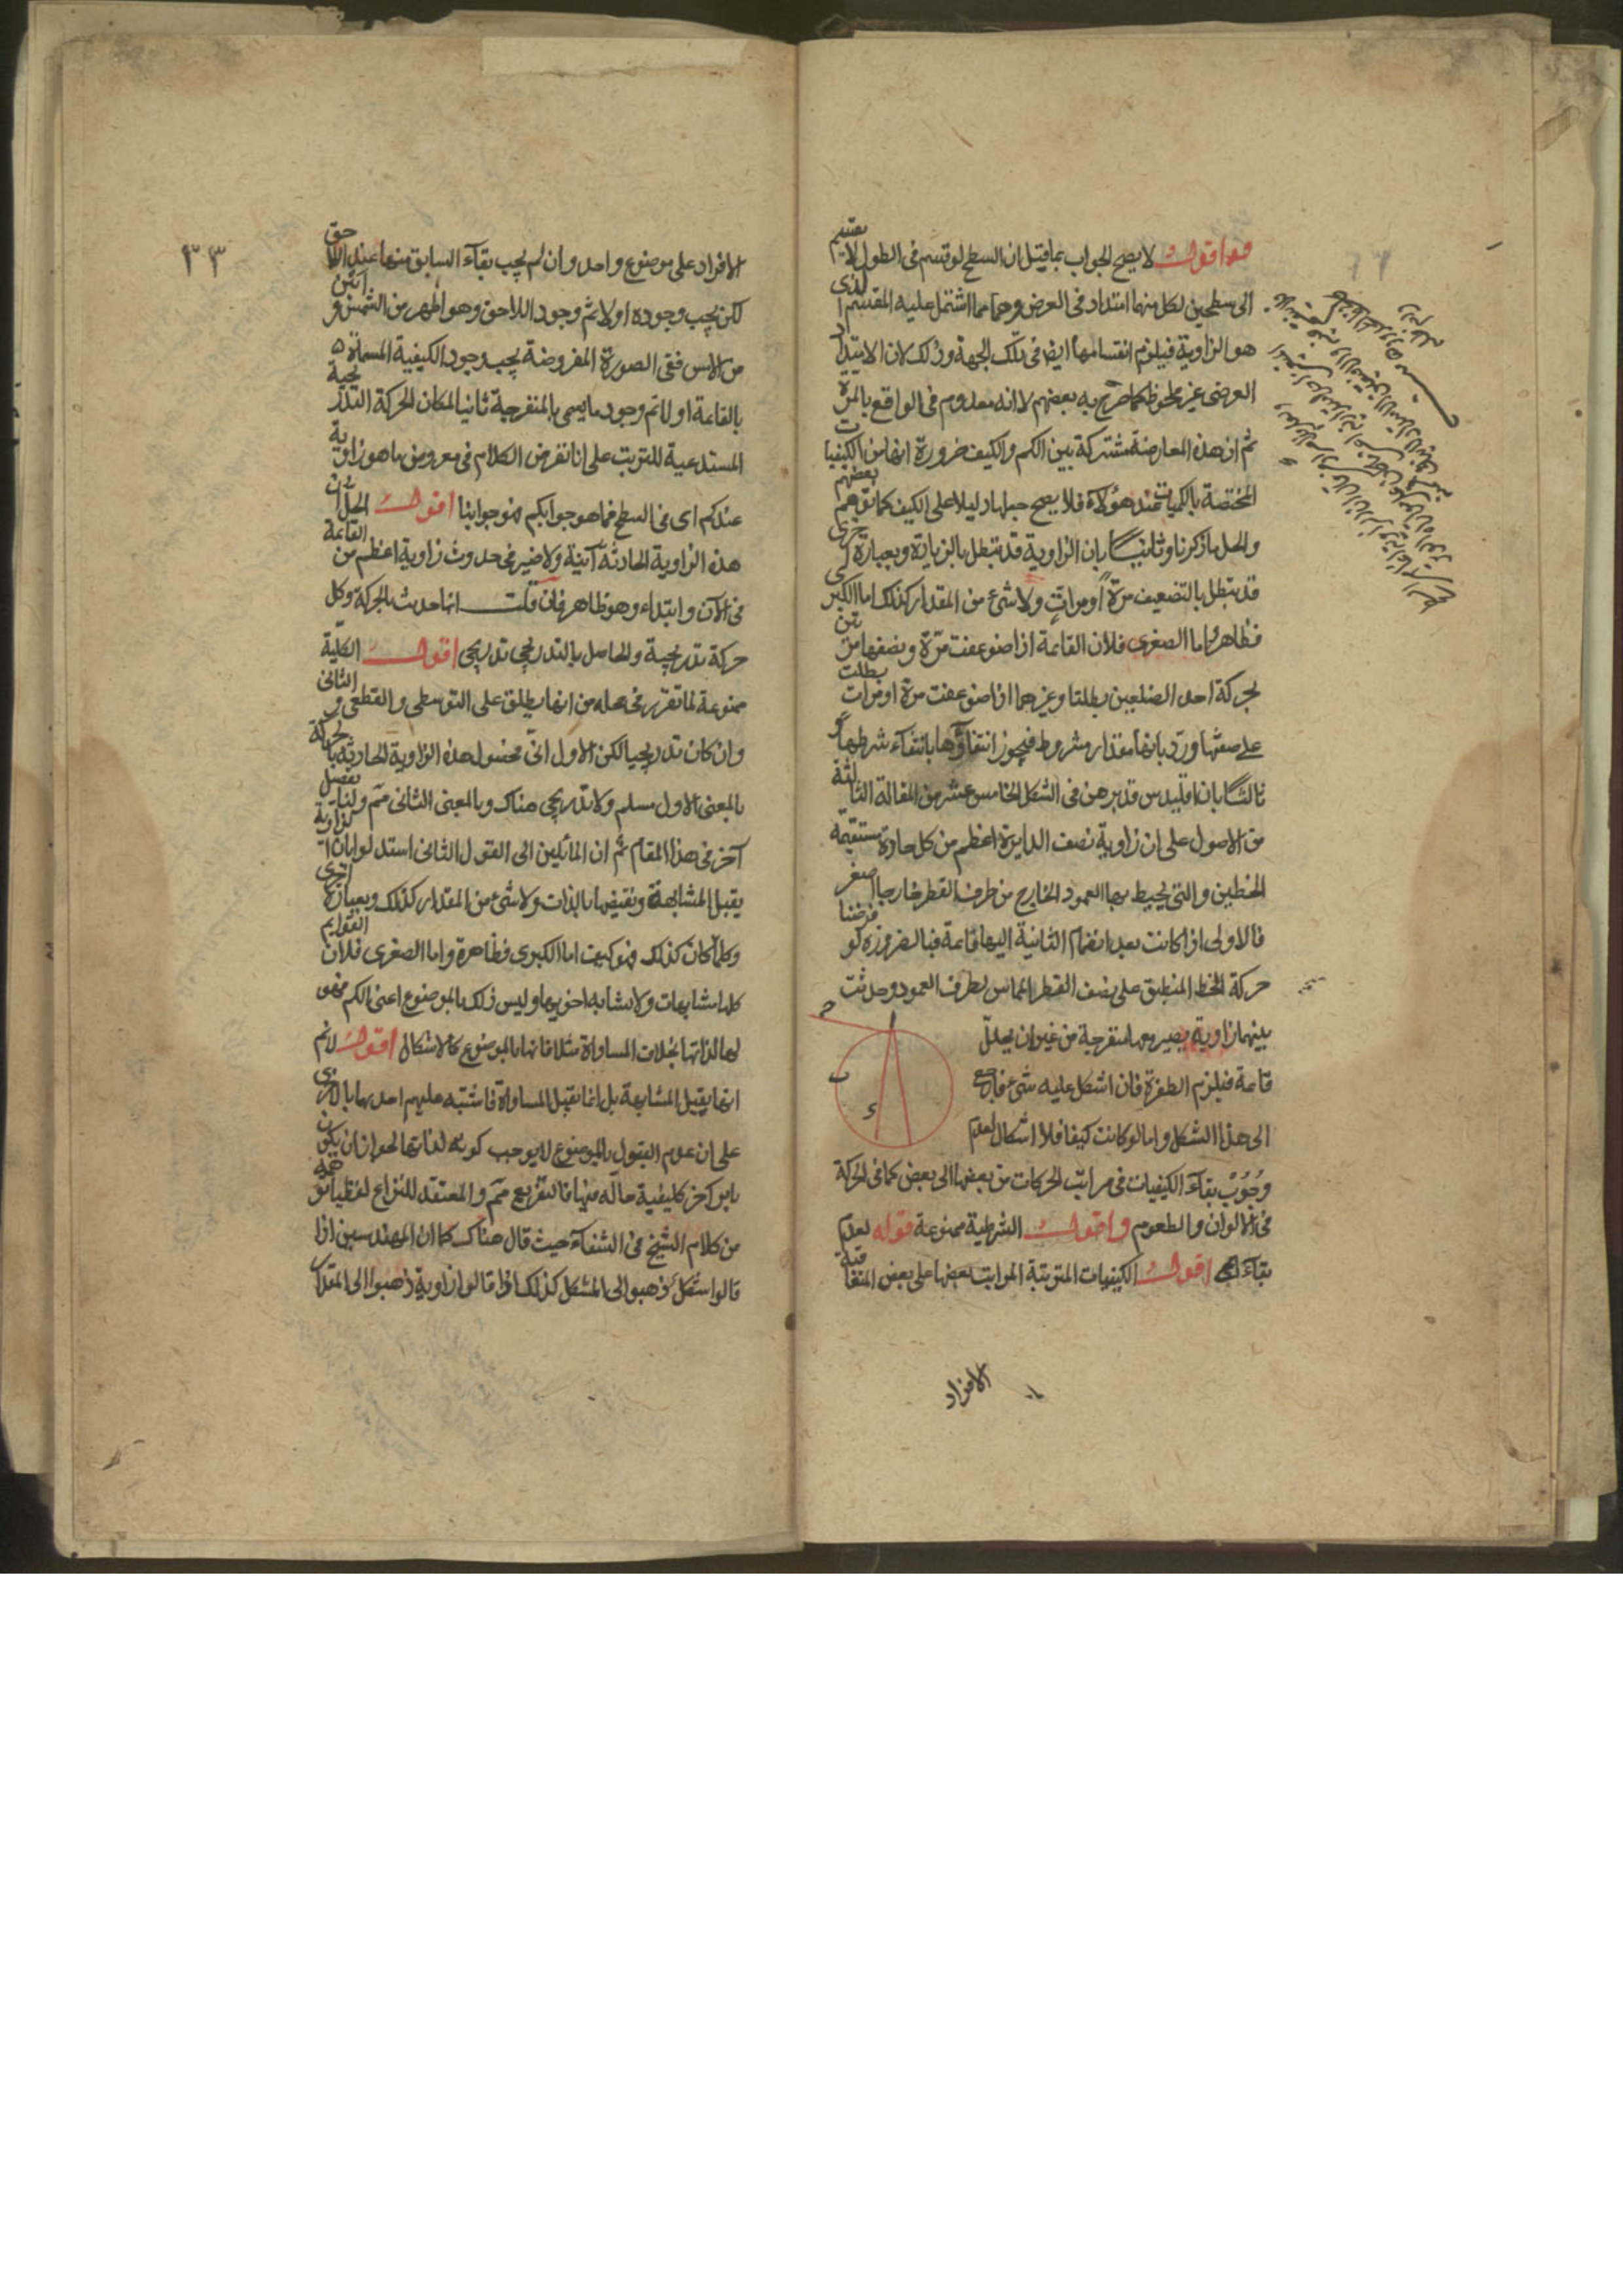 هذا اقول لا يصح الجواب بما قيل ان السطح لو قسم فى الطول لا ينقسم
الى سطحين لكل منهما امتداد فى العرض وهما مما اشتمل عليه المقسم الذى
هو الزاوية فيلزم انقسامها ايضا فى تلك الجهة وذلك لان الامتداد
العرضى غير ملحوظ كما صرح به بعضهم لا انه معدوم فى الواقع بالمرة
ثم ان هذه المعارضة مشتركة بين الكم والكيف ضرورة انها من الكيفيات
المختصة بالكميات عند هؤلاء فلا يصح جعلها دليلا على الكيف كما توهم بعضهم
والحل ما ذكرنا وثانيا بان الزاوية قد تبطل بالزيادة وبعبارة اخرى
قد تبطل بالتضعيف مرة او مرات ولا شئ من المقدار كذلك اما الكبرى
فظاهر واما الصغرى فلان القائمة اذا ضوعفت مرة ونصفها مرتين
بحركة احد الضلعين بطلتا وغيرهما اذا ضوعفت مرة او مرات بطلت
على صفتها ورد بانها مقدار مشروط فيجوز انتفاؤها بانتفاء شرطها و
ثالثا بان اقليدس قد برهن فى الشكل الخامس عشر من المقالة الثالثة
من الاصول على ان زاوية نصف الدايرة اعظم من كل حادة مستقيمة
الخطين والتى يحيط بها العمود الخارج من طرف القطر خارجا اصغر
فالاولى اذا كانت بعد انضمام الثانية اليها قائمة فبالضرورة لو فرضنا
حركة الخط المنطبق على نصف القطر المماس بطرف العمود وحدثت
بينهما زاوية يصير معها منفرجة من غير ان يحدث
قائمة فيلزم الطفرة فان اشكل عليه شئ فارجع
الى هذا الشكل واما لو كانت كيفا فلا اشكال لعدم
وجوب بقاء الكيفيات فى مراتب الحركات من بعضها الى بعض كما فى الحركة
فى الالوان والطعوم واقول الشرطية ممنوعة قوله لعدم
بقاء الخ اقول الكيفيات المترتبة المراتب بعضها على بعض المتعاقبة
الافراد
٣٣
الافراد على موضوع واحد وان لم يجب بقاء السابق منها عند اللاحق
لكن يجب وجوده اولا ثم وجود اللاحق وهو اظهر من الشمس و
من الامس ففى الصورة المفروضة يجب وجود الكيفية المسماة
بالقائمة اولا ثم وجود ما يسمى بالمنفرجة ثانيا لمكان الحركة التدريجية
المستدعية للترتب على انا نفرض الكلام فى معروض ما هو زاوية
عندكم اى فى السطح فما هو جوابكم فهو جوابنا اقول الحل ان
هذه الزاوية الحادثة آنية ولا ضير فى حدوث زاوية اعظم من القائمة
فى الآن وابتداء وهو ظاهر فان قلت انها حدثت بالحركة وكل
حركة تدريجية والحاصل بالتدريجى تدريجى اقول الكلية
ممنوعة لما تقرر فى محله من انها يطلق على التوسطى والقطعى والثانى
وان كان تدريجيا لكن الاول آنى فحصول هذه الزاوية الحادثة بالحركة
بالمعنى الاول مسلم ولا تدريجى هناك وبالمعنى الثانى مم ولنا تفصيل
آخر فى هذا المقام ثم ان المائلين الى القول الثانى استدلوا بان الزاوية
يقبل المشابهة ونقيضها بالذات ولا شئ من المقدار كذلك وبعبارة اخرى
وكلما كان كذلك فهو كيف اما الكبرى فظاهرة واما الصغرى فلان القوايم
كلها متشابهات ولا تشابه اخويها وليس ذلك بالموضوع اعنى الكم فهو
لها لذاتها بخلاف المساواة مثلا فانها بالموضوع كالاشكال اقول لا نم
انها يقبل المشابهة بل انما تقبل المساواة فاشتبه عليهم احدهما بالاخرى
على ان عدم القبول بالموضوع لا يوجب كونه لذاتها لجواز ان يكون
بامر آخر كليفية حالة فيها فالتفريع مم والمعتقد للنزاع لفظيا توهمه
من كلام الشيخ فى الشفاء حيث قال هناك كما ان المهندسين اذا
قالوا شكل ذهبوا الى المشكل كذلك اذا قالوا زاوية ذهبوا الى المقدار